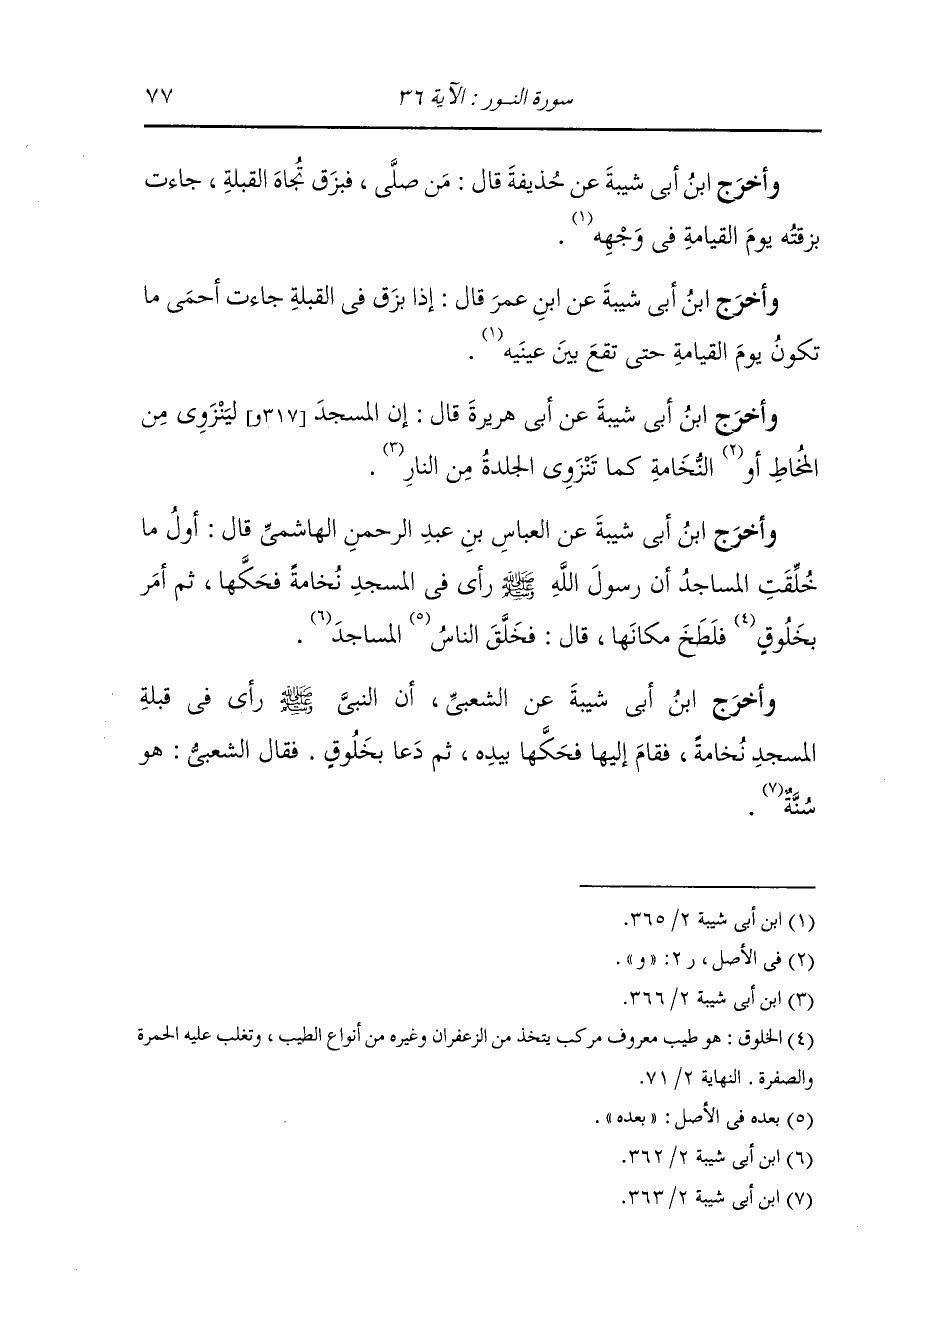 سورة النــور : الآية ٣٦ ٧٧
وأخرَج ابنُ أبى شيبةَ عن حُذيفةَ قال : مَن صلَّى ، فبزَق تُجاهَ القبلةِ ، جاءت
بزقتُه يومَ القيامةِ فى وَجْهِه(١) .
وأخرَج ابنُ أبى شيبةَ عن ابنِ عمرَ قال : إذا بزَق فى القبلةِ جاءت أحمَى ما
تكونُ يومَ القيامةِ حتى تقعَ بينَ عينَيه(١) .
وأخرَج ابنُ أبى شيبةَ عن أبى هريرةَ قال : إن المسجدَ [٣١٧و] ليَنْزَوِى مِن
المُخاطِ أو(٢) النُّخَامةِ كما تَنْزَوِى الجلدةُ مِن النارِ(٣) .
وأخرَج ابنُ أبى شيبةَ عن العباسِ بنِ عبدِ الرحمنِ الهاشمىِّ قال : أولُ ما
خُلِّقَتِ المساجدُ أن رسولَ اللَّهِ ﷺ رأى فى المسجدِ نُخامةً فحَكَّها ، ثم أمَر
بخَلُوقٍ(٤) فلَطَخَ مكانَها ، قال : فخَلَّقَ الناسُ(٥) المساجدَ(٦) .
وأخرَج ابنُ أبى شيبةَ عن الشعبىِّ ، أن النبىَّ ﷺ رأى فى قبلةِ
المسجدِ نُخامةً ، فقامَ إليها فحَكَّها بيدِه ، ثم دَعا بخَلُوقٍ . فقال الشعبىُّ : هو
سُنَّةٌ(٧) .
(١) ابن أبى شيبة ٢/ ٣٦٥.
(٢) فى الأصل ، ر ٢: « و » .
(٣) ابن أبى شيبة ٢/ ٣٦٦.
(٤) الخلوق : هو طيب معروف مركب يتخذ من الزعفران وغيره من أنواع الطيب ، وتغلب عليه الحمرة
والصفرة . النهاية ٢/ ٧١.
(٥) بعده فى الأصل : « بعده » .
(٦) ابن أبى شيبة ٢/ ٣٦٢.
(٧) ابن أبى شيبة ٢/ ٣٦٣.